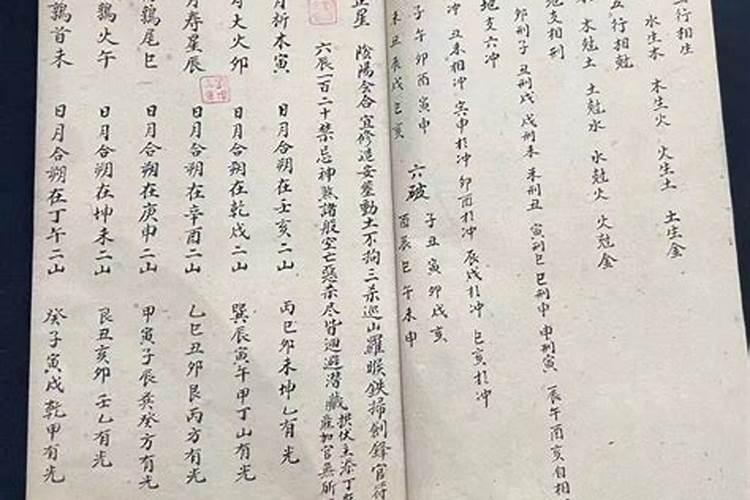 五行相生
水生木 木生火 火生土 土生金
五行相尅
木尅土 土尅水 水尅火 火尅金
地支相刑
卯刑子 丑刑戌 戌刑未 未刑丑 寅刑巳 巳刑申 申刑寅 辰午酉亥自相
地支六冲
冲 丑未相冲 寅申相冲 卯酉相冲 辰戌相冲 巳亥相冲
子午卯酉寅申 六破 子丑寅卯戌亥
未丑辰戌巳亥 酉辰巳午未申
正星 陰陽会合 宜修造安塟動土不拘三杀巡山羅睺鉄掃劍鋒官符
六辰一百二十禁忌神煞諸般空亡惡杀尽皆迴避潜藏
月析木寅 日月合朔在壬亥二山 丙巳卯未坤乙有光
月大火卯 日月合朔在乾戌二山 巽辰寅午甲丁山有光
月寿星辰 日月合朔在辛酉二山 乙巳丑卯艮丙方有光
鶉尾巳 日月合朔在庚申二山 甲寅子辰癸方有光
鶉火午 日月合朔在坤未二山 艮丑亥卯壬乙有光
鶉首未 日月合朔在丁午二山 癸子寅戌乾甲有光